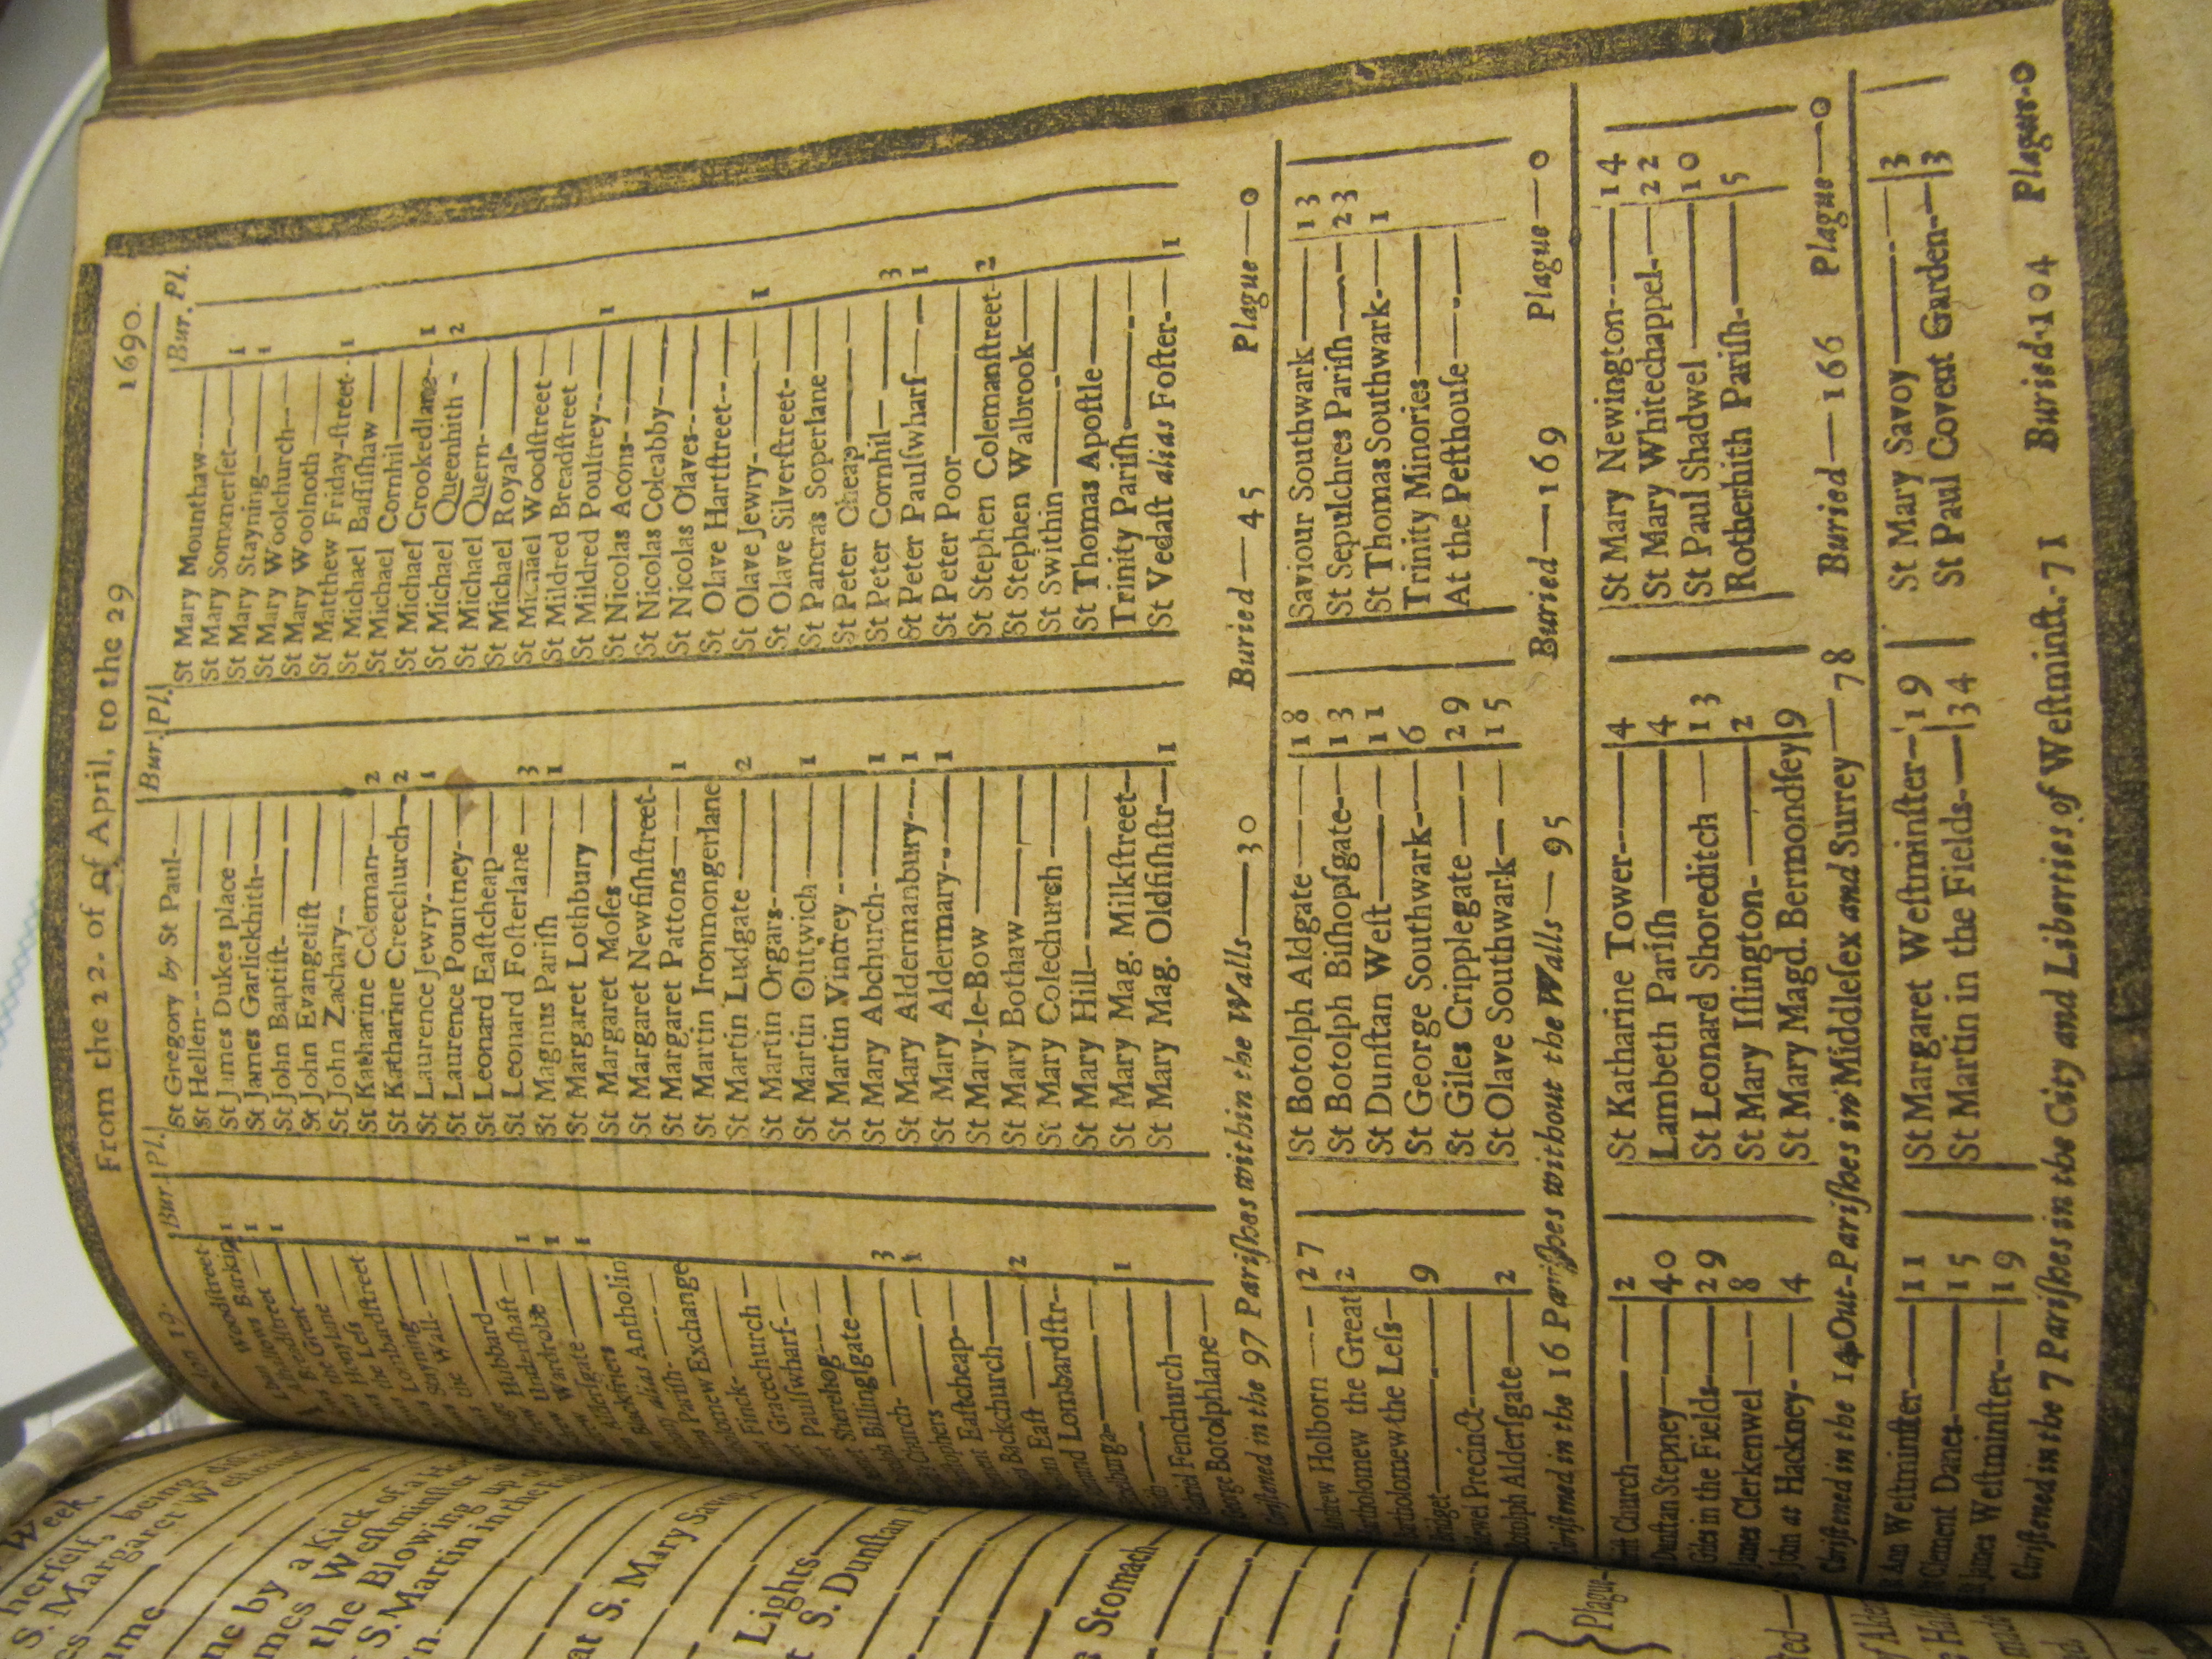 From the 22. of of April, to the 29 1690.
Bur. Pl.
Woodstreet
Barking 1
1
Breadstreet 1
Green
Honylane
the Less
Lombardstreet
the Wall
Hubbard
Undershaft 1
Wardrobe 1
1
Aldersgate
Blackfriers
alias Antholin
Parish
Exchange
Finck
Gracechurch
Paulswharf
Sherehog
Billingsgate
Church 3
1
Eastcheap
Backchurch
East 2
Lombardstr
1
Fenchurch
Botolphlane
Bur. Pl.
St Gregory by St Paul
St Hellen
St James Dukes place
St James Garlickhith
St John Baptist
St John Evangelist
St John Zachary
St Katharine Coleman 2
St Katharine Creechurch 2
St Laurence Jewry 1
St Laurence Pountney
St Leonard Eastcheap
St Leonard Fosterlane 3
St Magnus Parish 1
St Margaret Lothbury
St Margaret Moses
St Margaret Newfishstreet
St Margaret Pattons 1
St Martin Ironmongerlane
St Martin Ludgate 2
St Martin Orgars
St Martin Outwich 1
St Martin Vintrey
St Mary Abchurch 1
St Mary Aldermanbury 1
St Mary Aldermary 1
St Mary-le-Bow
St Mary Bothaw
St Mary Colechurch
St Mary Hill
St Mary Mag. Milkstreet
St Mary Mag. Oldfishstr 1
Bur. Pl.
St Mary Mounthaw
St Mary Sommerset 1
St Mary Stayning 1
St Mary Woolchurch
St Mary Woolnoth
St Matthew Friday-street 1
St Michael Bassishaw
St Michael Cornhil
St Michael Crookedlane 1
St Michael Queenhith 2
St Michael Quern
St Michael Royal
St Michael Woodstreet
St Mildred Breadstreet
St Mildred Poultrey 1
St Nicolas Acons
St Nicolas Coleabby
St Nicolas Olaves
St Olave Hartstreet
St Olave Jewry 1
St Olave Silverstreet
St Pancras Soperlane
St Peter Cheap
St Peter Cornhil 3
St Peter Paulswharf 1
St Peter Poor
St Stephen Colemanstreet 2
St Stephen Walbrook
St Swithin
St Thomas Apostle
Trinity Parish
St Vedast alias Foster 1
Christened in the 97 Parishes within the Walls 30 Buried 45 Plague 0
Andrew Holborn 27
Bartholomew the Great 2
Bartholomew the Less
Bridget 9
Bridewel Precinct
Botolph Aldersgate 2
St Botolph Aldgate 18
St Botolph Bishopsgate 13
St Dunstan West 11
St George Southwark 6
St Giles Cripplegate 29
St Olave Southwark 15
Saviour Southwark 13
St Sepulchres Parish 23
St Thomas Southwark 1
Trinity Minories
At the Pesthouse
Christened in the 16 Parishes without the Walls 95 Buried 169 Plague 0
Church 2
Dunstan Stepney 40
Giles in the Fields 29
James Clerkenwel 8
John at Hackney 4
St Katharine Tower 4
Lambeth Parish 4
St Leonard Shoreditch 13
St Mary Islington 2
St Mary Magd. Bermondsey 9
St Mary Newington 14
St Mary Whitechappel 22
St Paul Shadwel 10
Rotherhith Parish 5
Christened in the 14 Out-Parishes in Middlesex and Surrey 78 Buried 166 Plague 0
Ann Westminster 11
Clement Danes 15
James Westminster 19
St Margaret Westminster 19
St Martin in the Fields 34
St Mary Savoy 3
St Paul Covent Garden 3
Christened in the 7 Parishes in the City and Liberties of Westminst. 71 Buried 104 Plague 0
Week.
herself, being
S. Margaret
a Kick of a
the Westminster
the Blowing up
S. Martin in the
at S. Mary
Lights
S. Dunstan
Stomach
Plague